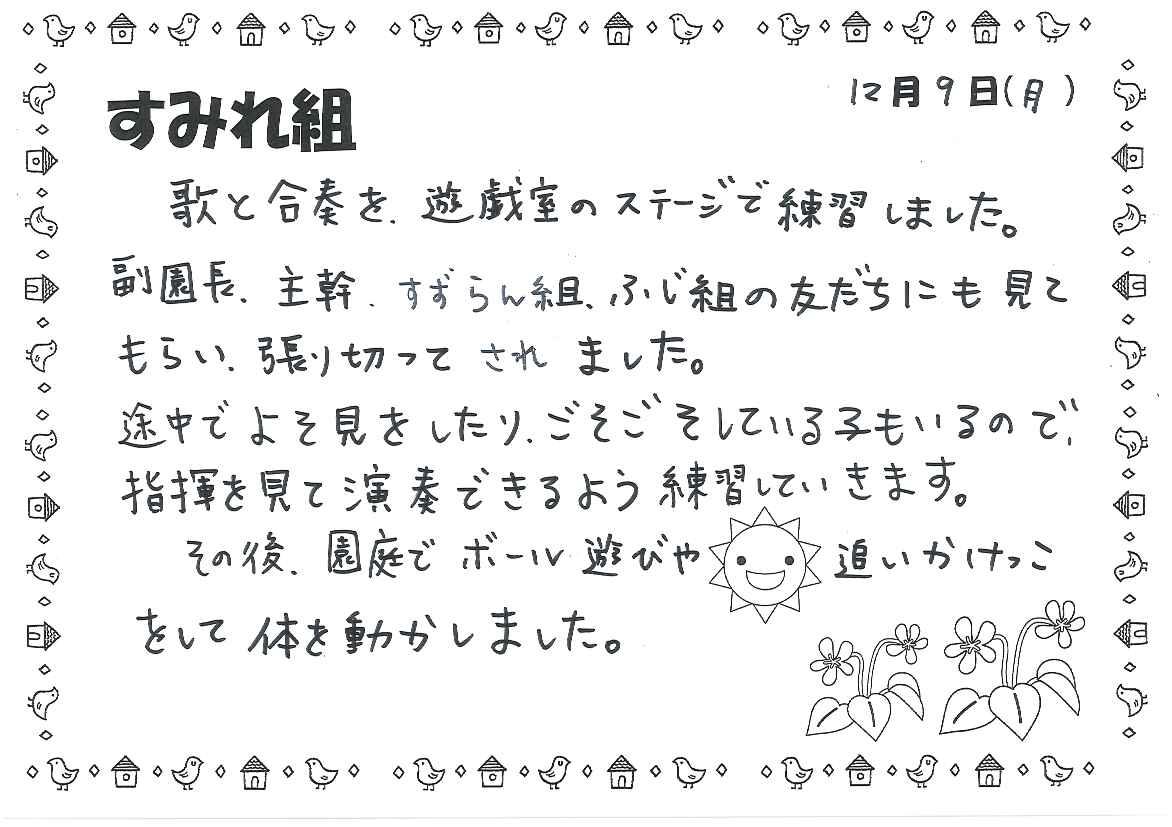 12月9日(月)
すみれ組
歌と合奏を、遊戯室のステージで練習しました。
副園長、主幹、すずらん組、ふじ組の友だちにも見て
もらい、張り切ってされました。
途中でよそ見をしたり、ごそごそしている子もいるので、
指揮を見て演奏できるよう練習していきます。
その後、園庭でボール遊びや追いかけっこ
をして体を動かしました。